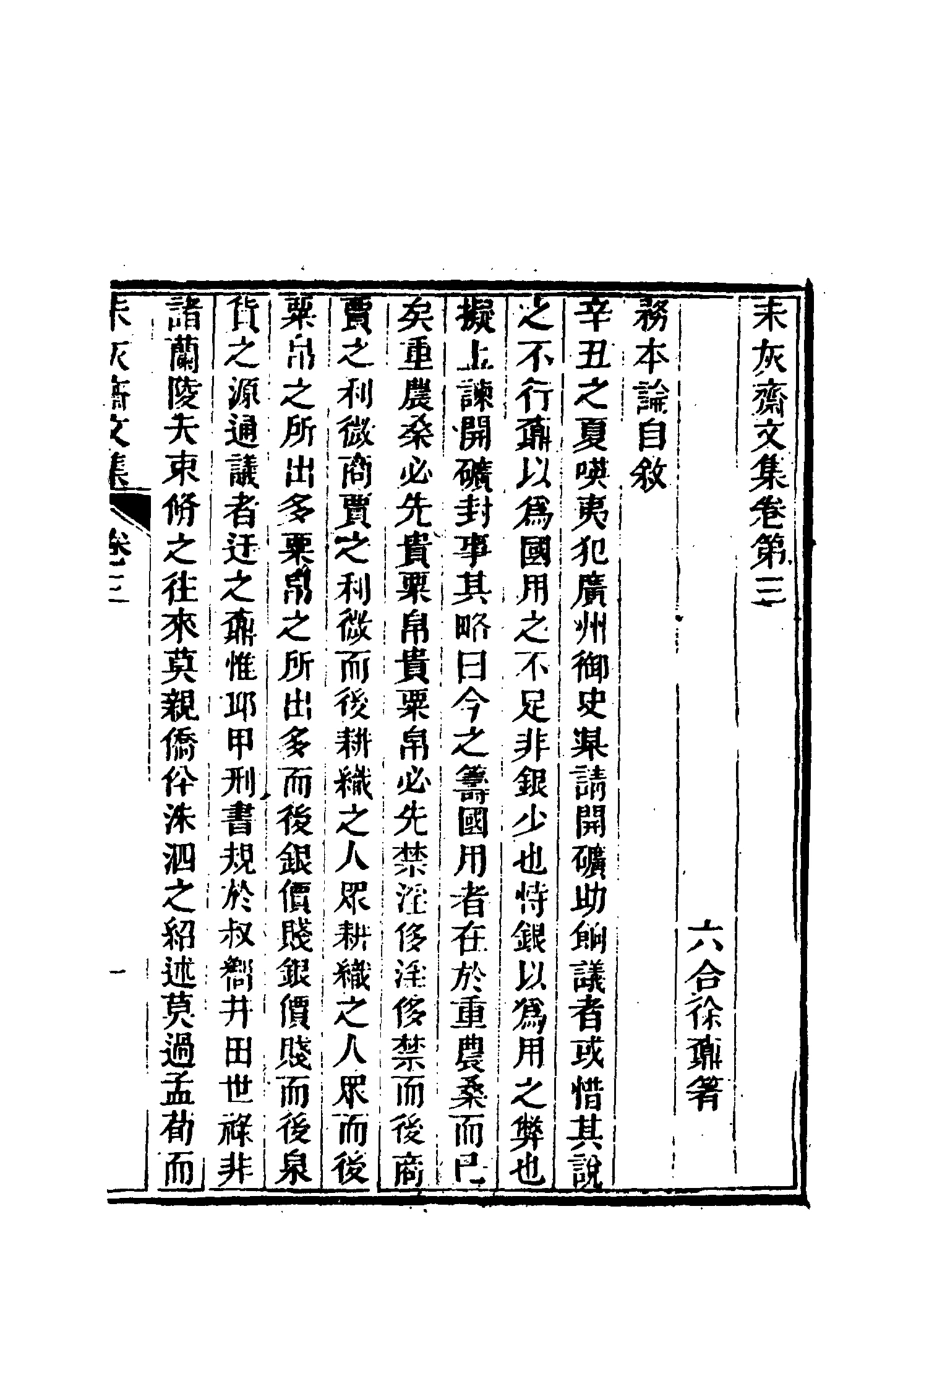 未灰齋文集卷第三
六合徐鼒箸
務本論自敘
辛丑之夏㗲夷犯廣州御史某請開礦助餉議者或惜其說
之不行鼒以爲國用之不足非銀少也恃銀以爲用之弊也
擬上諫開礦封事其略曰今之籌國用者在於重農桑而已
矣重農桑必先貴粟帛貴粟帛必先禁淫侈淫侈禁而後商
賈之利微商賈之利微而後耕織之人眾耕織之人眾而後
粟帛之所出多粟帛之所出多而後銀價賤銀價賤而後泉
貨之源通議者迂之鼒惟邱甲刑書規於叔嚮井田世祿非
諸蘭陵夫束脩之往來莫親僑仐洙泗之紹述莫過孟荀而
未灰齋文集
卷三
一